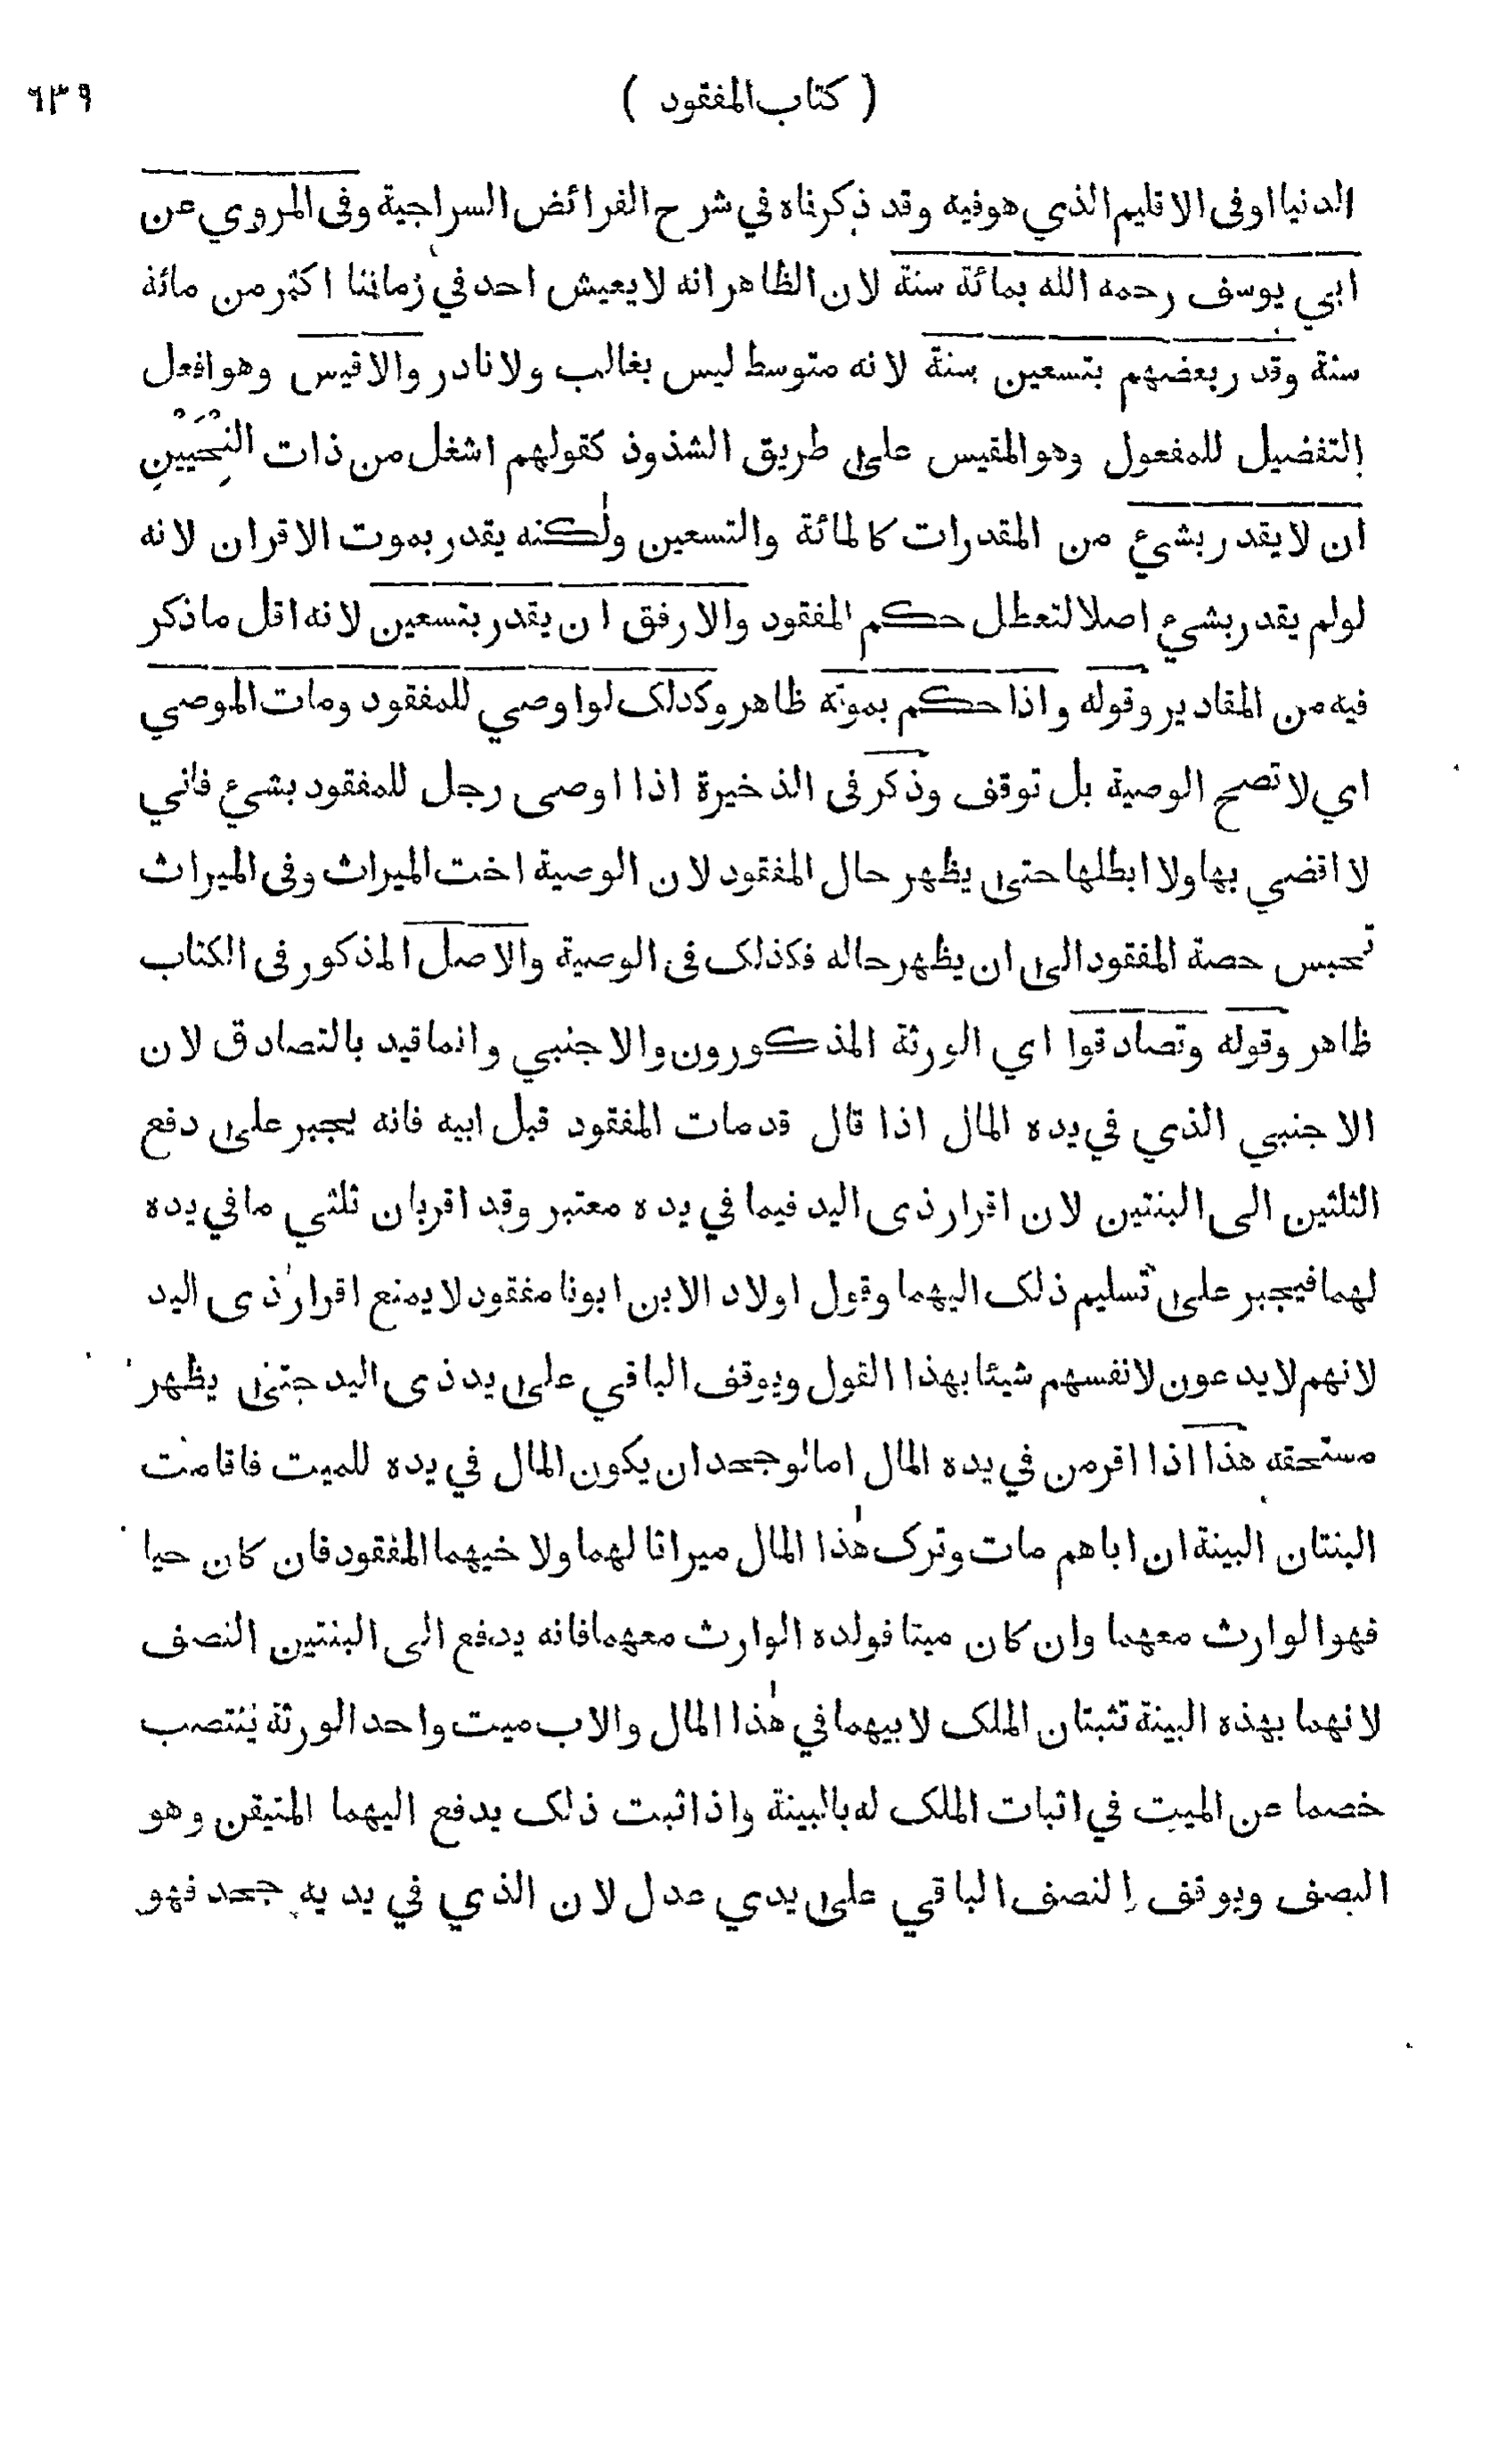 ( كتاب المفقود ) ٦٣٩
الدنيا اوفى الاقليم الذي هو فيه وقد ذكرناه في شرح الفرائض السراجية وفى المروي عن
ابي يوسف رحمه الله بمائة سنة لان الظاهر انه لا يعيش احد في زماننا اكثر من مائة
سنة وقدر بعضهم بتسعين سنة لانه متوسط ليس بغالب ولا نادر والاقيس وهو افعل
التفضيل للمفعول وهو المقيس على طريق الشذوذ كقولهم اشغل من ذات النِحْيَيْنِ
ان لا يقدر بشيء من المقدرات كالمائة والتسعين ولٰكنه يقدر بموت الاقران لانه
لو لم يقدر بشيء اصلا لتعطل حكم المفقود والارفق ان يقدر بتسعين لانه اقل ما ذكر
فيه من المقادير وقوله واذا حكم بموته ظاهر وكذلك لو اوصي للمفقود ومات الموصي
اي لا تصح الوصية بل توقف وذكر فى الذخيرة اذا اوصى رجل للمفقود بشيء فاني
لا اقضي بها ولا ابطلها حتى يظهر حال المفقود لان الوصية اخت الميراث وفى الميراث
تحبس حصة المفقود الى ان يظهر حاله فكذلك فى الوصية والاصل المذكور فى الكتاب
ظاهر وقوله وتصادقوا اي الورثة المذكورون والاجنبي وانما قيد بالتصادق لان
الاجنبي الذي في يده المال اذا قال قد مات المفقود قبل ابيه فانه يجبر على دفع
الثلثين الى البنتين لان اقرار ذى اليد فيما في يده معتبر وقد اقر بان ثلثي ما في يده
لهما فيجبر على تسليم ذلك اليهما وقول اولاد الابن ابونا مفقود لا يمنع اقرار ذى اليد
لانهم لا يدعون لانفسهم شيئا بهذا القول ويوقف الباقي على يد ذى اليد حتى يظهر
مستحقه هذا اذا اقر من في يده المال اما لو جحد ان يكون المال في يده للميت فاقامت
البنتان البينة ان اباهم مات وترك هٰذا المال ميراثا لهما ولاخيهما المفقود فان كان حيا
فهو الوارث معهما وان كان ميتا فولده الوارث معهما فانه يدفع الى البنتين النصف
لانهما بهذه البينة تثبتان الملك لابيهما في هٰذا المال والاب ميت واحد الورثة ينتصب
خصما عن الميت في اثبات الملك له بالبينة واذا ثبت ذلك يدفع اليهما المتيقن وهو
النصف ويوقف النصف الباقي على يدي عدل لان الذي في يديه جحد فهو